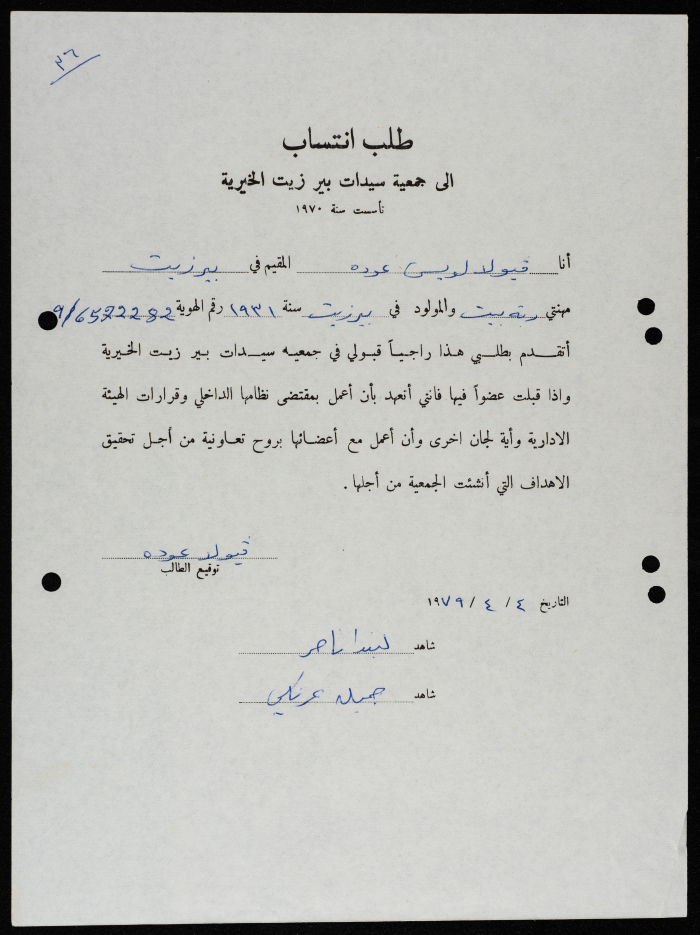 ٣٦
طلب انتساب
الى جمعية سيدات بير زيت الخيرية
تأسست سنة ١٩٧٠
أنا ڤيولا لويس عوده المقيم في بيرزيت
مهنتي ربة بيت والمولود في بيرزيت سنة ١٩٣١ رقم الهوية 9/6522282
أتقدم بطلبي هذا راجياً قبولي في جمعيه سيدات بير زيت الخيرية
واذا قبلت عضواً فيها فانني أتعهد بأن أعمل بمقتضى نظامها الداخلي وقرارات الهيئة
الادارية وأية لجان اخرى وأن أعمل مع أعضائها بروح تعاونية من أجل تحقيق
الاهداف التي أنشئت الجمعية من أجلها .
ڤيولا عوده
توقيع الطالب
التاريخ ٤ / ٤ / ١٩٧٩
شاهد ليندا ناصر
شاهد جميله عرنكي